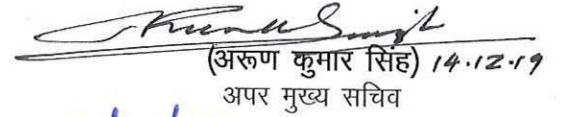 (अरूण कुमार सिंह) 14.12.19
अपर मुख्य सचिव